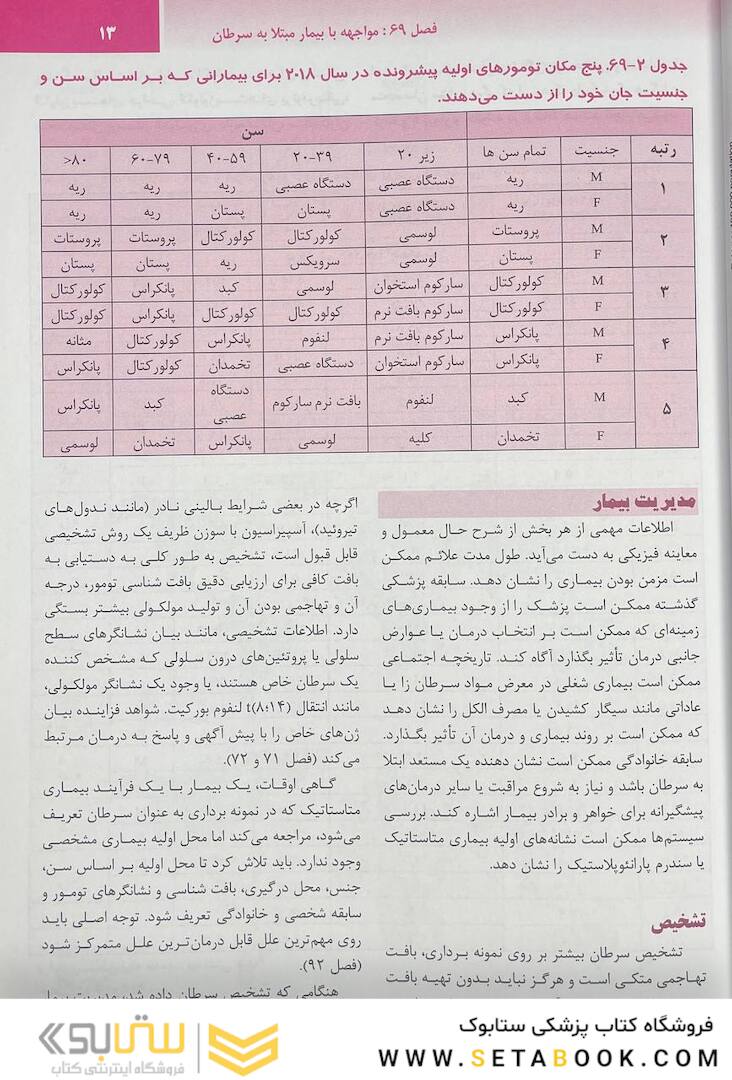 فصل ۶۹: مواجهه با بیمار مبتلا به سرطان
۱۳
جدول ۲-۶۹. پنج مکان تومورهای اولیه پیشرونده در سال ۲۰۱۸ برای بیمارانی که بر اساس سن و
جنسیت جان خود را از دست می‌دهند.
سن
رتبه جنسیت تمام سن ها زیر ۲۰ ۲۰-۳۹ ۴۰-۵۹ ۶۰-۷۹ >۸۰
۱ M ریه دستگاه عصبی دستگاه عصبی ریه ریه ریه
F ریه دستگاه عصبی پستان پستان ریه ریه
۲ M پروستات لوسمی کولورکتال کولورکتال پروستات پروستات
F پستان لوسمی سرویکس ریه پستان پستان
۳ M کولورکتال سارکوم استخوان لوسمی کبد پانکراس کولورکتال
F کولورکتال سارکوم بافت نرم کولورکتال کولورکتال پانکراس کولورکتال
۴ M پانکراس سارکوم بافت نرم لنفوم پانکراس کولورکتال مثانه
F پانکراس سارکوم استخوان دستگاه عصبی تخمدان کولورکتال پانکراس
۵ M کبد لنفوم بافت نرم سارکوم دستگاه عصبی کبد پانکراس
F تخمدان کلیه لوسمی پانکراس تخمدان لوسمی
مدیریت بیمار
اطلاعات مهمی از هر بخش از شرح حال معمول و
معاینه فیزیکی به دست می‌آید. طول مدت علائم ممکن
است مزمن بودن بیماری را نشان دهد. سابقه پزشکی
گذشته ممکن است پزشک را از وجود بیماری‌های
زمینه‌ای که ممکن است بر انتخاب درمان یا عوارض
جانبی درمان تأثیر بگذارد آگاه کند. تاریخچه اجتماعی
ممکن است بیماری شغلی در معرض مواد سرطان زا یا
عاداتی مانند سیگار کشیدن یا مصرف الکل را نشان دهد
که ممکن است بر روند بیماری و درمان آن تأثیر بگذارد.
سابقه خانوادگی ممکن است نشان دهنده یک مستعد ابتلا
به سرطان باشد و نیاز به شروع مراقبت یا سایر درمان‌های
پیشگیرانه برای خواهر و برادر بیمار اشاره کند. بررسی
سیستم‌ها ممکن است نشانه‌های اولیه بیماری متاستاتیک
یا سندرم پارانئوپلاستیک را نشان دهد.
تشخیص
تشخیص سرطان بیشتر بر روی نمونه برداری، بافت
تهاجمی متکی است و هرگز نباید بدون تهیه بافت
اگرچه در بعضی شرایط بالینی نادر (مانند ندول‌های
تیروئید)، آسپیراسیون با سوزن ظریف یک روش تشخیصی
قابل قبول است، تشخیص به طور کلی به دستیابی به
بافت کافی برای ارزیابی دقیق بافت شناسی تومور، درجه
آن و تهاجمی بودن آن و تولید مولکولی بیشتر بستگی
دارد. اطلاعات تشخیصی، مانند بیان نشانگرهای سطح
سلولی یا پروتئین‌های درون سلولی که مشخص کننده
یک سرطان خاص هستند، یا وجود یک نشانگر مولکولی،
مانند انتقال t(۸؛۱۴) لنفوم بورکیت. شواهد فزاینده بیان
ژن‌های خاص را با پیش آگهی و پاسخ به درمان مرتبط
می‌کند (فصل ۷۱ و ۷۲).
گاهی اوقات، یک بیمار با یک فرآیند بیماری
متاستاتیک که در نمونه برداری به عنوان سرطان تعریف
می‌شود، مراجعه می‌کند اما محل اولیه بیماری مشخصی
وجود ندارد. باید تلاش کرد تا محل اولیه بر اساس سن،
جنس، محل درگیری، بافت شناسی و نشانگرهای تومور و
سابقه شخصی و خانوادگی تعریف شود. توجه اصلی باید
روی مهم‌ترین علل قابل درمان‌ترین علل متمرکز شود
(فصل ۹۲).
هنگامی که تشخیص سرطان داده شد، مدیریت
فروشگاه کتاب پزشکی ستابوک
WWW.SETABOOK.COM
ستابوک
فروشگاه اینترنتی کتاب